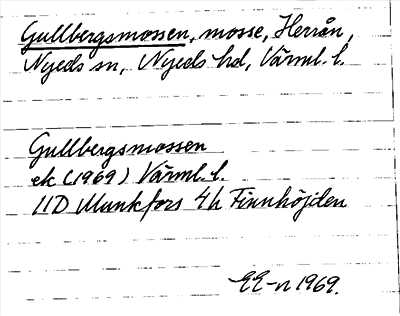 Gullbergsmossen, mosse, Herrån,
Nyeds sn, Nyeds hd, Värml. l.
Gullbergsmossen
ek (1969) Värml. l.
11D Munkfors 4h Finnhöjden
EE-n 1969.